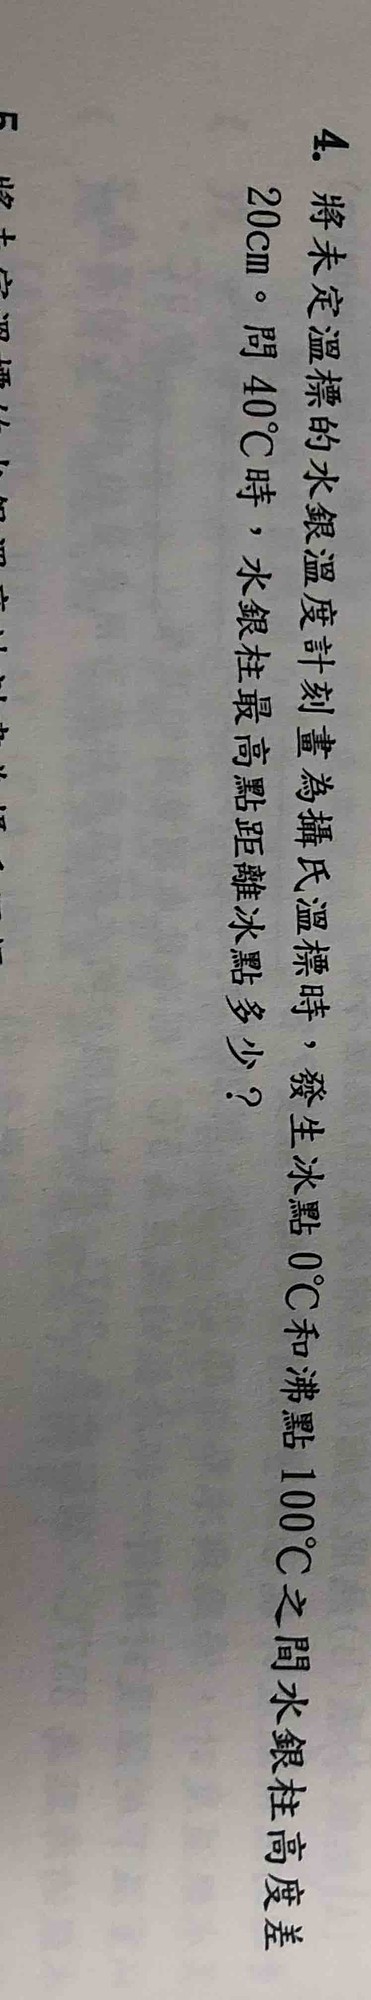 4. 將未定溫標的水銀溫度計刻畫為攝氏溫標時，發生冰點 0℃和沸點 100℃之間水銀柱高度差
20cm。問 40℃時，水銀柱最高點距離冰點多少？
5